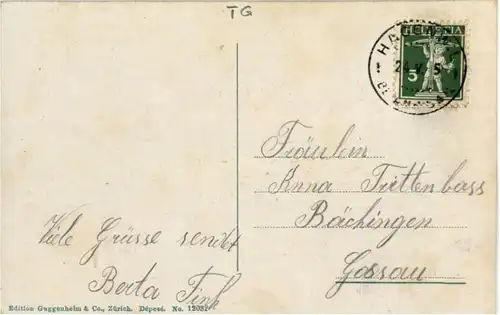 TG
HELVETIA
5
Fräulein
Anna Tuttenbass
Bächingen
Gossau
Viele Grüsse sendet
Berta Fink
Edition Guggenheim & Co., Zürich. Déposé. No. 12032